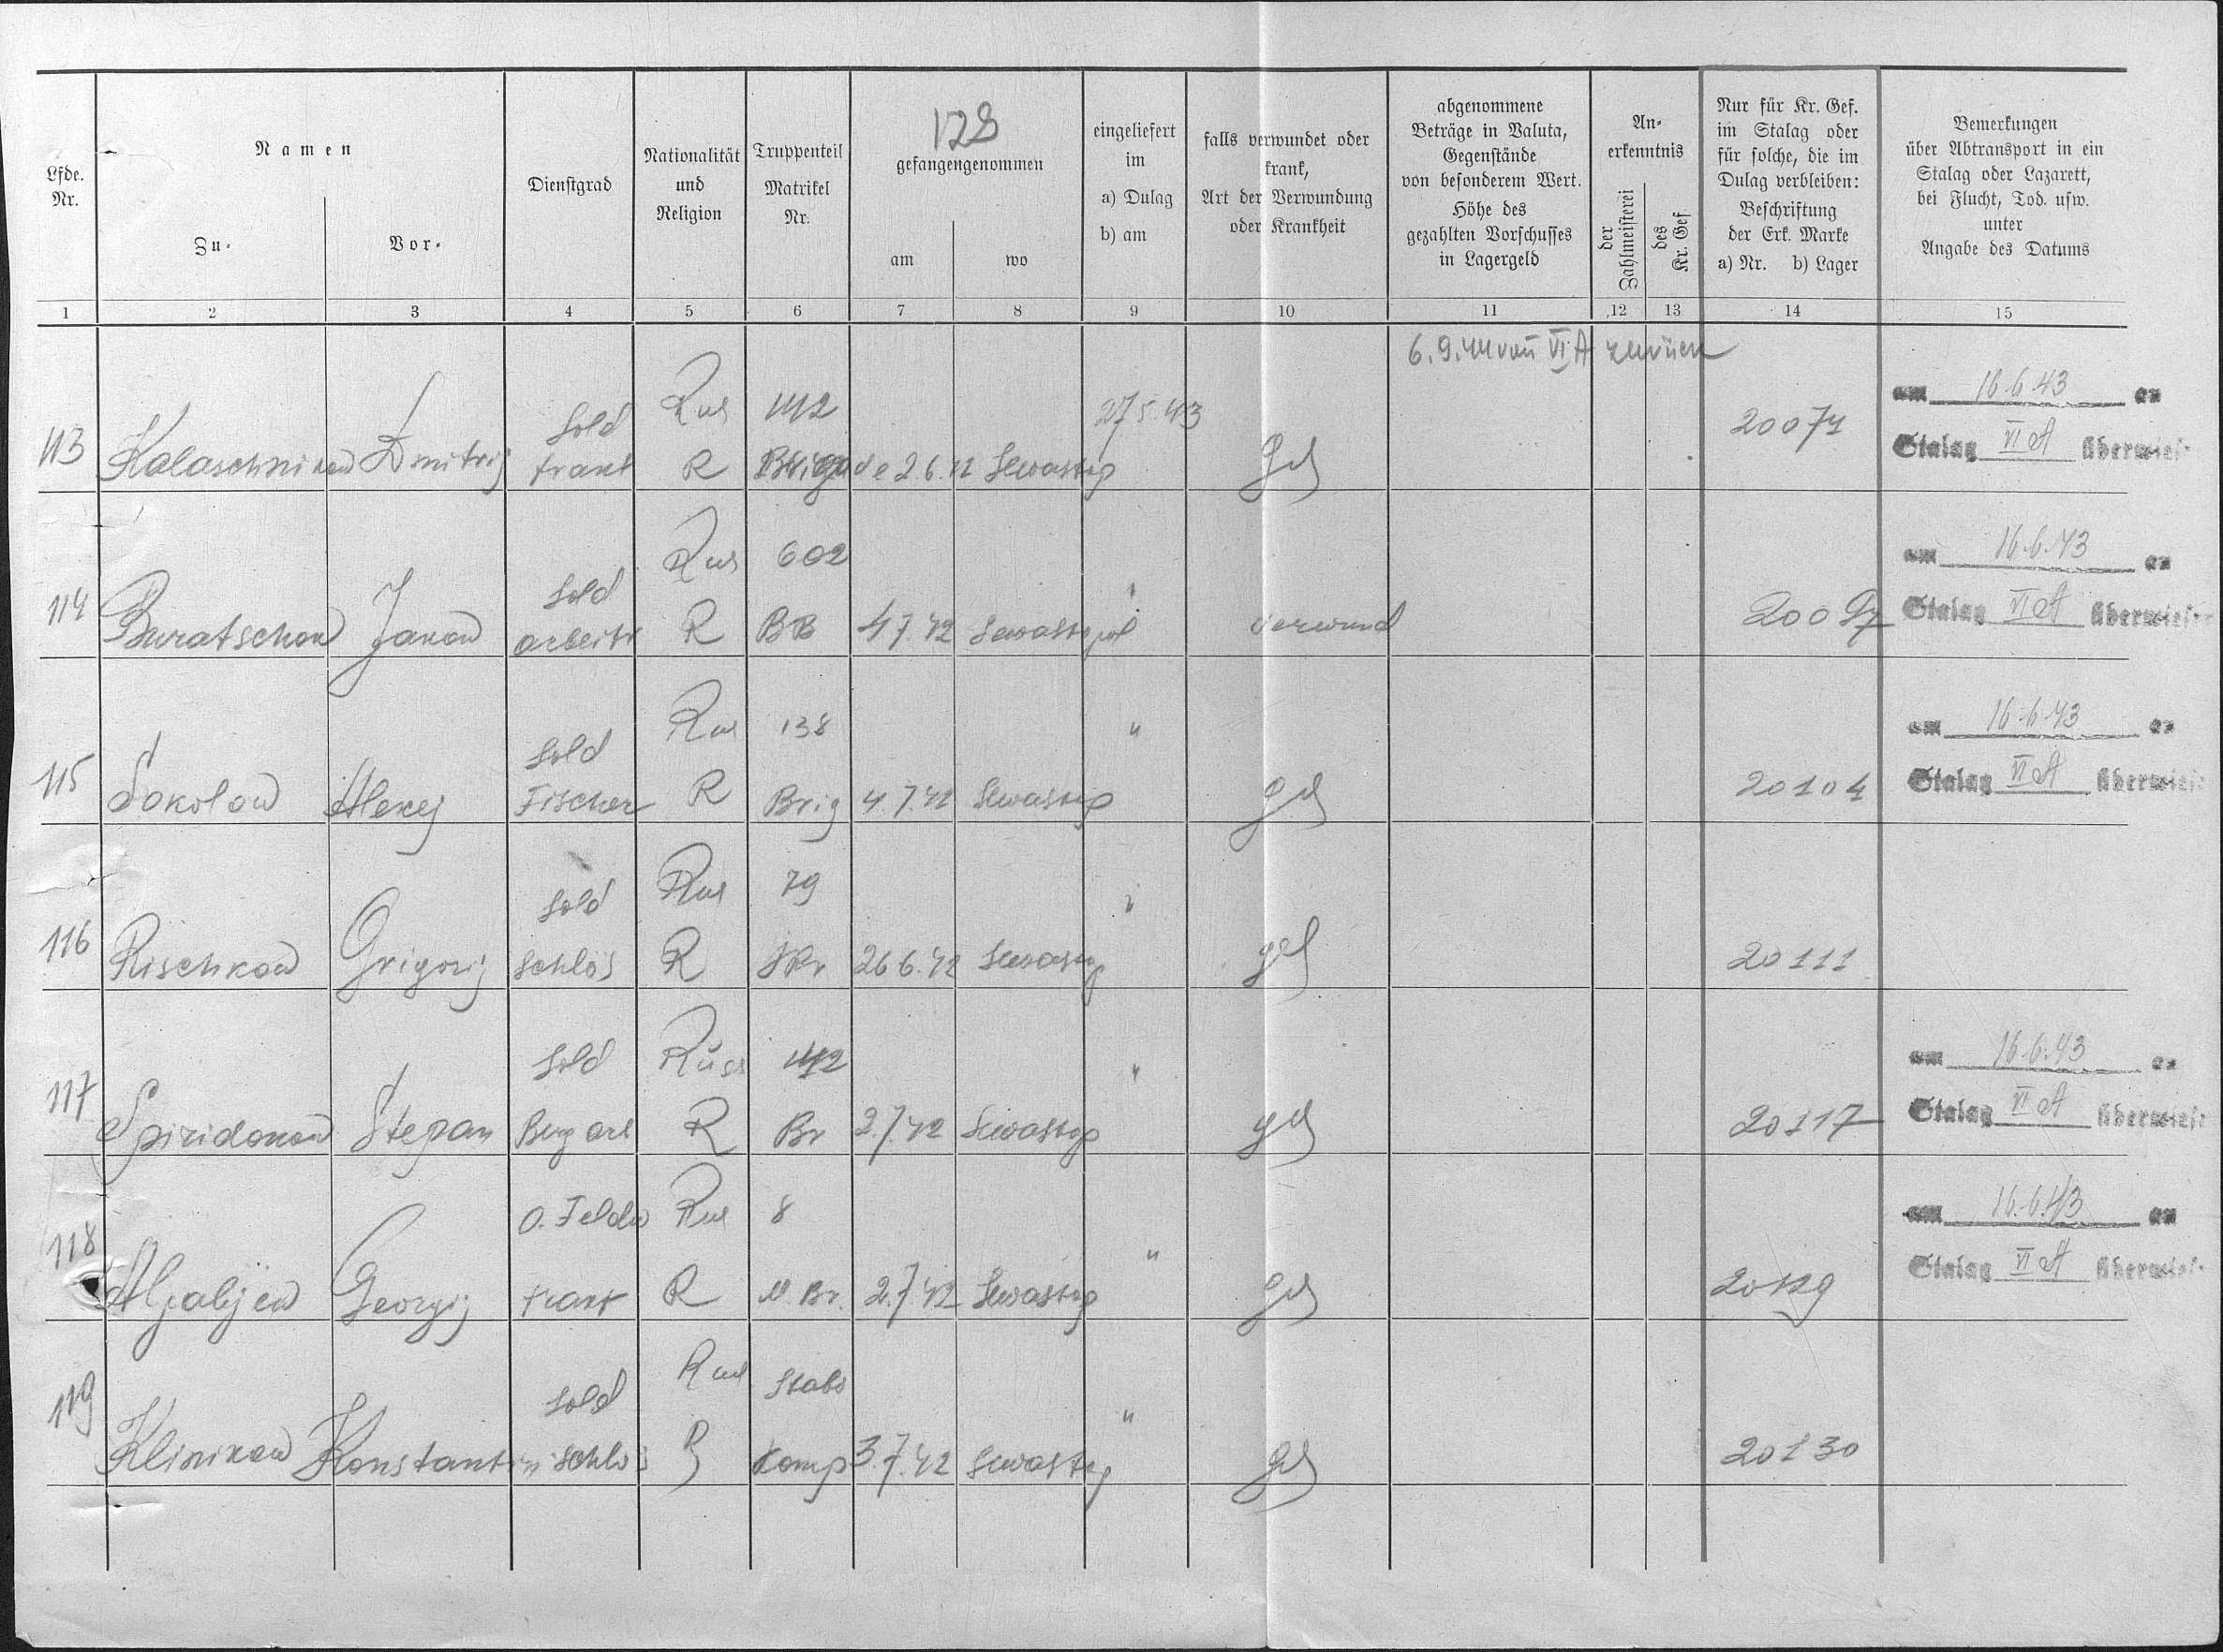 128
Lfde. Nr.
Namen
Zu-
Vor-
Dienstgrad
Nationalität und Religion
Truppenteil Matrikel Nr.
gefangengenommen
am
wo
eingeliefert im a) Dulag b) am
falls verwundet oder krank, Art der Verwundung oder Krankheit
abgenommene Beträge in Valuta, Gegenstände von besonderem Wert. Höhe des gezahlten Vorschusses in Lagergeld
An-erkenntnis
der Zahlmeisterei
des Kr. Gef.
Nur für Kr. Gef. im Stalag oder für solche, die im Dulag verbleiben: Beschriftung der Erk. Marke a) Nr. b) Lager
Bemerkungen über Abtransport in ein Stalag oder Lazarett, bei Flucht, Tod. usw. unter Angabe des Datums
1 2 3 4 5 6 7 8 9 10 11 12 13 14 15
6.9.44 von VI A zurück
Sold Rus 142 27.5.43 am 16.6.43 an
113 Kalaschnikow Dmitrij trakt R Brigade 2.6.42 Sewastop Ges 20071 Stalag VI A überwies
Sold Rus 602 " am 16.6.43 an
114 Buratschow Jakow arbeitr R BB 4.7.42 Sewastopol verwund 20097 Stalag VI A überwiesen
Sold Rus 138 " am 16.6.43 an
115 Sokolow Alexej Fischer R Brig 4.7.42 Sewastop Ges 20104 Stalag VI A überwies
Sold Rus 79 "
116 Rischkow Grigorij Schlos R 26.6.42 Sewastop ges 20111
Sold Russ 142 " am 16.6.43 an
117 Spiridonow Stepan Berg arb R Br 2.7.42 Sewastop ges 20117 Stalag VI A überwies
O. Feldw Rus 8 " am 16.6.43 an
118 Georgij trakt R M. Br. 2.7.42 Sewastop Ges 20129 Stalag VI A überwies
Sold Rus Stabs "
119 Klinikow Konstantin Schlos R Komp 3.7.42 Sewastop Ges 20130